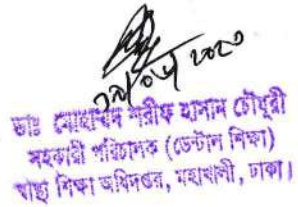 ডাঃ মোহাম্মদ শরীফ হাসান চৌধুরী
সহকারী পরিচালক (ডেন্টাল শিক্ষা)
স্বাস্থ্য শিক্ষা অধিদপ্তর, মহাখালী, ঢাকা।